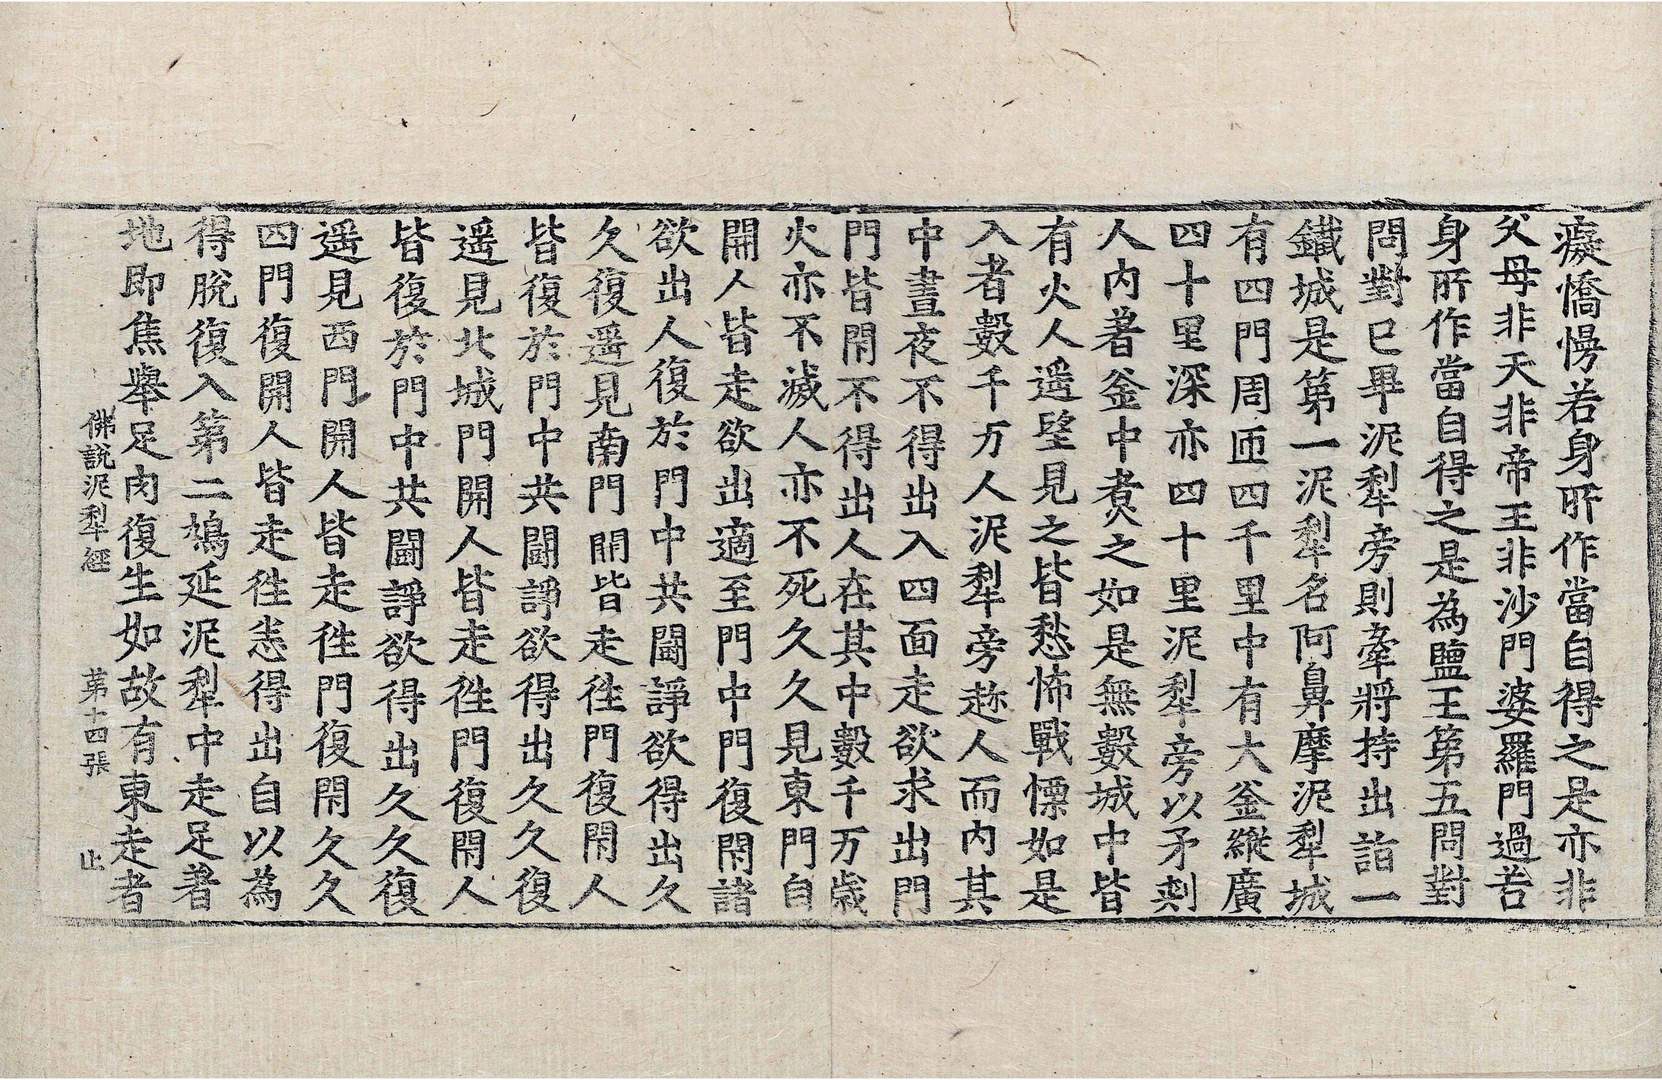 癡憍慢若身所作當自得之是亦非
父母非天非帝王非沙門婆羅門過若
身所作當自得之是為鹽王第五問對
問對已畢泥犁旁則牽將持出詣一
鐵城是第一泥犁名阿鼻摩泥犁城
有四門周匝四千里中有大釜縱廣
四十里深亦四十里泥犁旁以矛刺
人內著釜中煑之如是無數城中皆
有火人遥望見之皆愁怖戰慄如是
入者數千万人泥犁旁趂人而內其
中晝夜不得出入四面走欲求出門
門皆閇不得出人在其中數千万歲
火亦不滅人亦不死久久見東門自
開人皆走欲出適至門中門復閇諸
欲出人復於門中共鬪諍欲得出久
久復遥見南門開皆走徃門復閇人
皆復於門中共鬪諍欲得出久久復
遥見北城門開人皆走徃門復閇人
皆復於門中共鬪諍欲得出久久復
遥見西門開人皆走徃門復閇久久
四門復開人皆走徃恙得出自以為
得脫復入第二鳩延泥犁中走足著
地即焦舉足肉復生如故有東走者
佛說泥犁經 第十四張 止